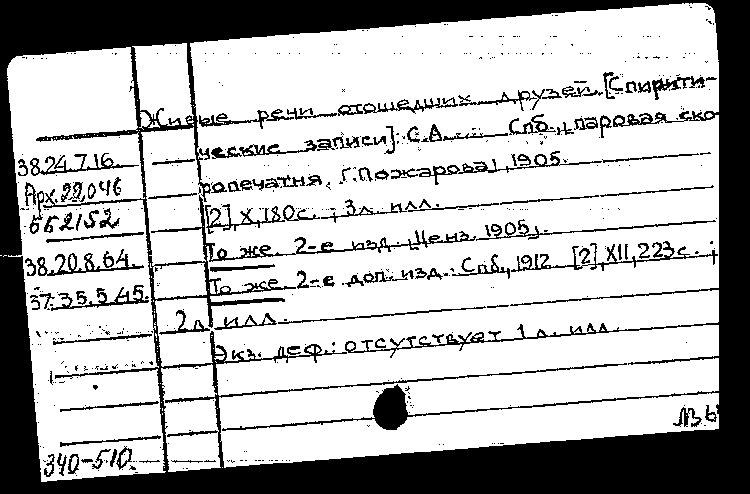 Живые речи отошедших друзей. [Спирити-
ческие записи]. С.А.... Спб., „паровая ско-
38.24.7.16.
ропечатня Г. Пожарова„, 1905.
Арх.22,046
[2], X, 180 с. ; 3 л. илл.
552152
То же. 2-е изд. „Ценз. 1905„.
38.20.8.64.
То же. 2-е доп. изд. Спб., 1912. [2], XII, 223 с. ;
37.35.5.45.
2 л. илл.
Экз. деф.: отсутствует 1 л. илл.
340-510.